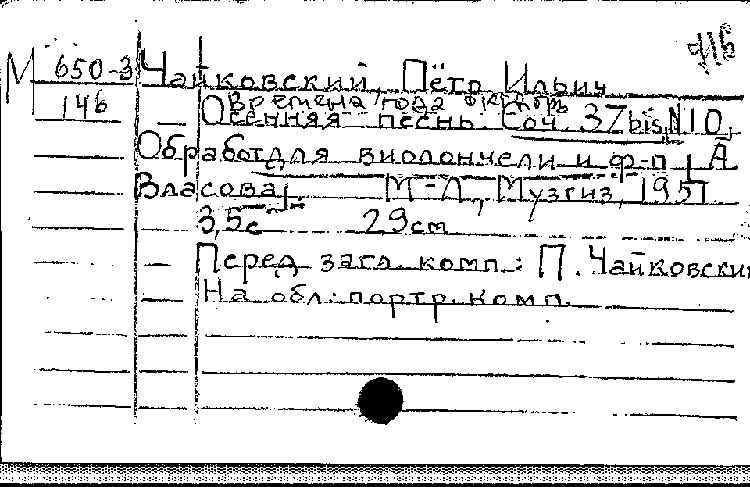 М 650-3 Чайковский, Пётр Ильич
146 Времена года Октябрь
— Осенняя песнь. Соч. 37bis, N10.
Обработ для виолончели и ф-п А.
Власова. М-Л, Музгиз, 1951
3,5с 29см
— Перед загл. комп.: П. Чайковский
— На обл: портр. комп.